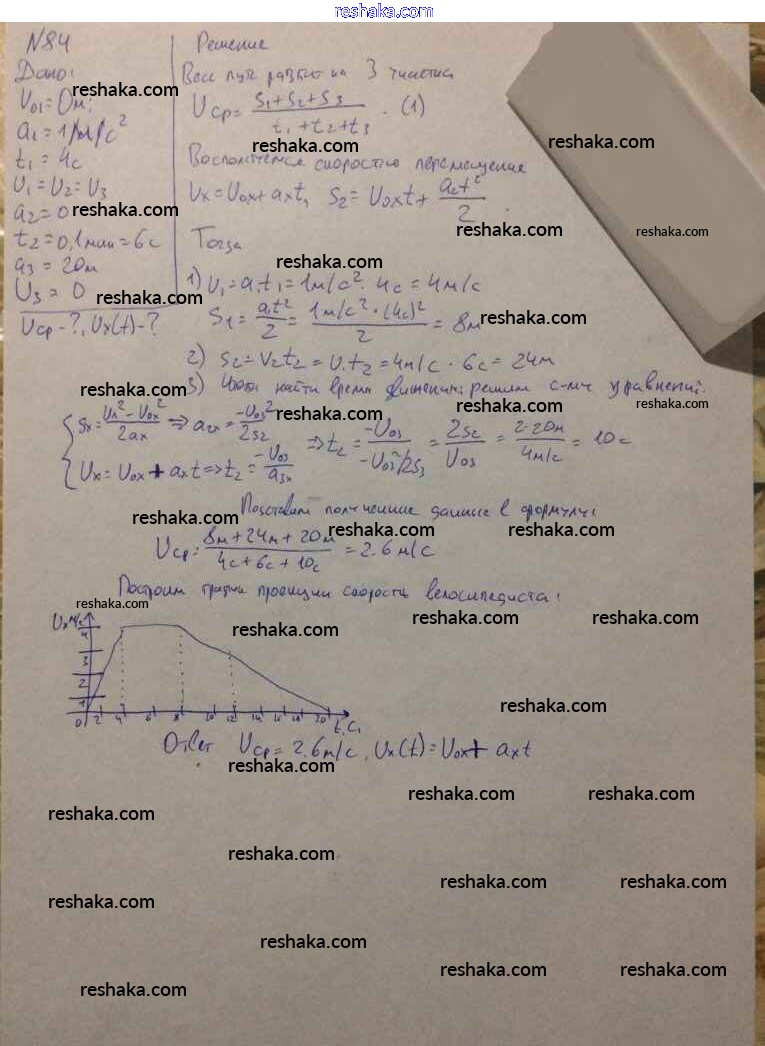 reshaka.com
N84
Дано:
V01 = 0м;
a1 = 1м/с²
t1 = 4с
U1 = U2 = U3
a2 = 0
t2 = 0,1мин = 6с
a3 = 20м
U3 = 0
Uср - ?, Ux(t) - ?
Решение
Весь путь разбит на 3 участка
Uср = (S1 + S2 + S3) / (t1 + t2 + t3) . (1)
скоростью перемещение
Ux = U0x + axt, S2 = U0xt + at²/2.
Тогда
1) U1 = a1t1 = 1м/с² · 4с = 4м/с
S1 = at²/2 = 1м/с² · (4с)²/2 = 8м
2) S2 = V2t2 = U1t2 = 4м/с · 6с = 24м
3) найти время движения; решим с-му уравнений:
Sx = (Ux² - U0x²)/2ax => a2x = -U03²/2S2
Ux = U0x + axt => t2 = -U03/a3x
=> t2 = -U03/(-U03²/2S3) = 2S2/U03 = 2·20м/4м/с = 10с
Подставим полученные данные в формулу:
Uср = (8м + 24м + 20м)/(4с + 6с + 10с) = 2.6м/с
Построим график проекции скорость велосипедиста:
Ux м/с
4
3
2
1
0 2 4 6 8 10 12 14 16 18 20
t, с.
Ответ Uср = 2.6м/с, Ux(t) = U0x + axt
reshaka.com